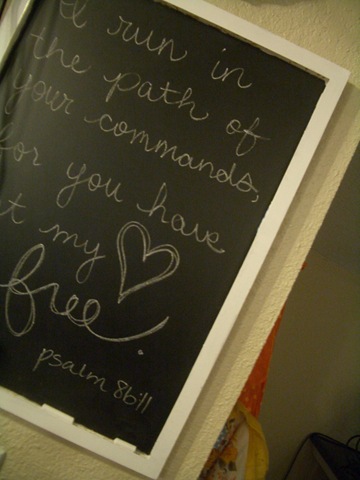 I run in
the path of
your commands,
for you have
t my ♡
free.
psalm 86:11